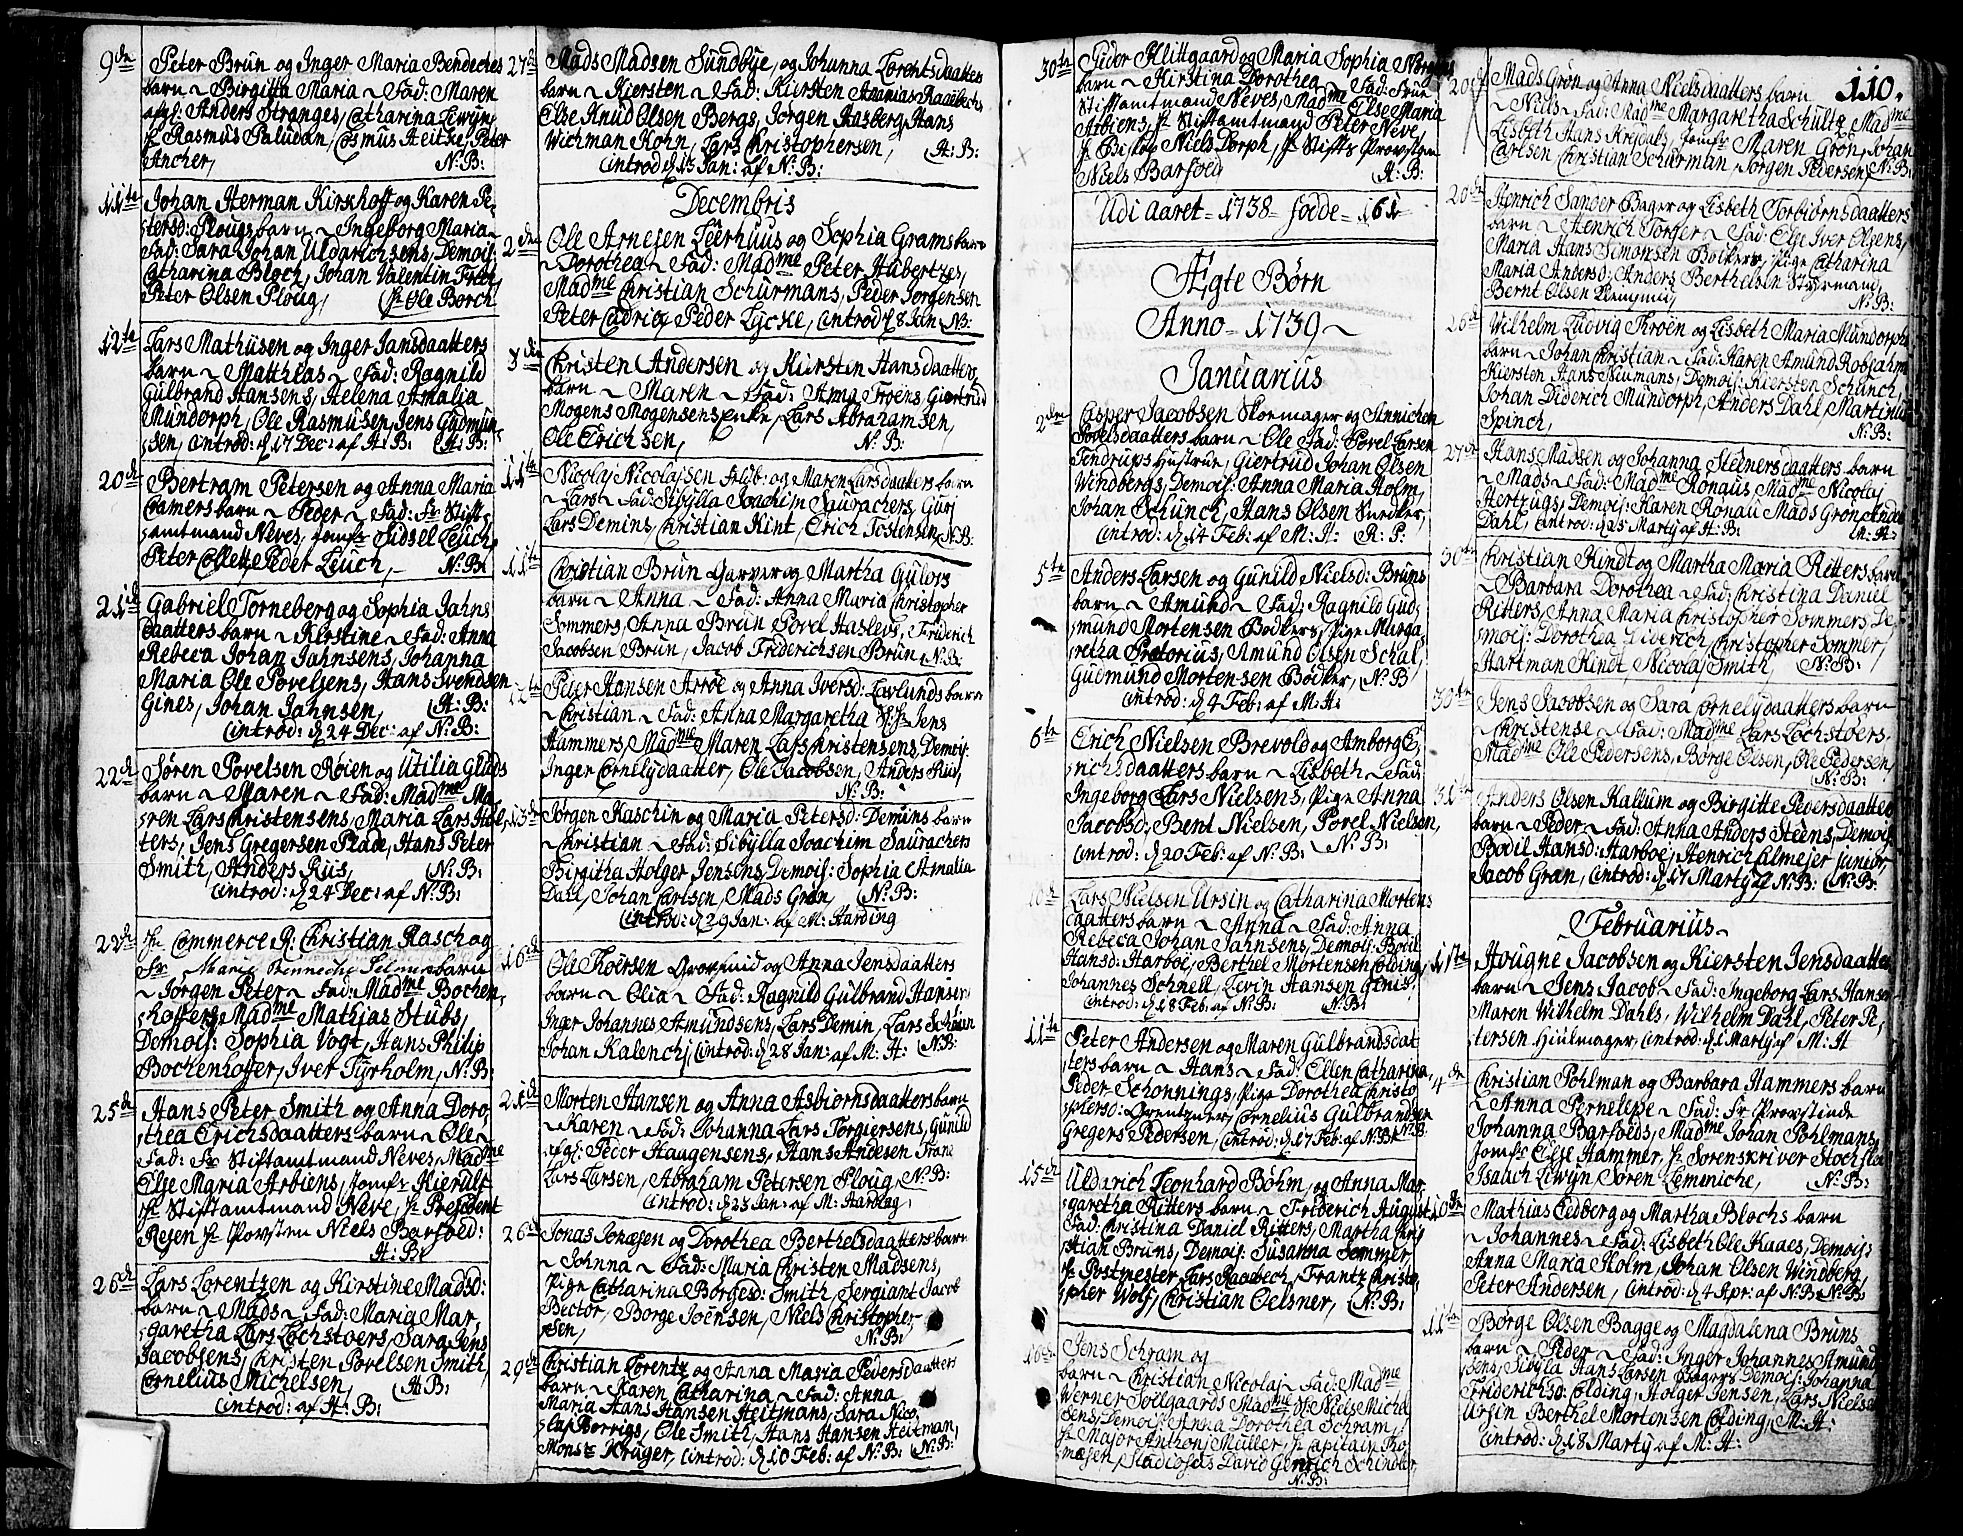 9de Peter Brun og Inger Maria Bendeches
barn ~ Birgitta Maria ~ Fad: Maren
afgl: Anders Stranges, Catharina Lewyn,
hr Rasmus Paludan, Cosmus Heitke, Peter
Ancher, N: B:
11te Johan Herman Kirkhoff og Karen Pe-
tersd: Plougs barn ~ Ingeborg Maria ~
Fad: Sara Johan Uldarichsens, Demois:
Catharina Bloch, Johan Valentin
Peter Olsen Ploug, hr Ole Borch
12te Lars Mathisen og Inger Jansdaatters
barn ~ Matthias ~ Fad: Ragnild
Gulbrand Hansens, Helena Amalia
Mundorph, Ole Rasmusen, Jens Gudmun-
sen, introd: d 17 Dec: af H: B: H: B:
20de Bertram Petersen og Anna Maria
Cramers barn ~ Peder ~ Fad: Fr Stift-
amtmand Neves, Jomfr Sidsel Leuch,
Peter Collett, Peder Leuch, N: B:
21de Gabriel Torneberg og Sophia Jahns
daatters barn ~ Kirstine ~ Fad: Anna
Rebeca Johan Jahnsens, Johanna
Maria Ole Povelsens, Hans Svendsen
Gines, Johan Jahnsen, H: B:
introd: d 24 Dec: af N: B:
22de Søren Povelsen Røien og Utilia Glads
barn ~ Maren ~ Fad: Madme Ma-
ren Lars Christensens, Maria Lars Hol-
ters, Jens Gregersen Plade, Hans Peter
Smith, Anders Rus, N: B:
introd: d 24 Dec: af N: B:
22de hr Commerce R: Christian Rasch og
Fr. Marie barn
~ Jørgen Peter ~ Fad: Madme Bochen-
hoffers, Madme Mathias Stubs,
Demois: Sophia Vogt, Hans Philip
Bochenhoffer, Iver Tyrholm, N: B:
25de Hans Peter Smith og Anna Doro-
thea Erichsdaatters barn ~ Ole ~
Fad: Fr Stiftamtmand Neves, Madme
Else Maria Arbiens, Jomfr Kierulf
hr Stiftamtmand Neve, hr President
Resen hr Provsten Niels Barfoed:
H: B:
26de Lars Lorentzen og Kirstine Madsd:
barn ~ Mads ~ Fad: Maria Mar-
garetha Lars Lochstoers, Sara Jens
Jacobsens, Christen Povelsen Smith,
Cornelius Michelsen, H: B:
introd: af H: B:
27de Mads Madsen Sundbye, og Johanna Lorentsdaatters
barn ~ Kiersten ~ Fad: Kiersten Ananias Raaebechs
Else Knud Olsen Bergs, Jørgen Aasberg, Hans
Wichman Kohn, Lars Christophersen, H: B:
introd: d 13 Jan: af N: B:
Decembris
2den Ole Arnesen Leerhuus og Sophia Grams barn
~ Dorothea ~ Fad: Madme Peter Hubertzes,
Madme Christian Schurmans, Peder Jørgensen
Peter Cudrio, Peder Lycke, introd: d 8 Jan N: B:
3die Christen Andersen og Kiersten Hansdaatters
barn ~ Maren ~ Fad: Anna Troens, Giertrud
Mogens Mogensens Enke, Lars Abrahamsen,
Ole Erichsen, N: B:
11te Nicolaj Nicolajsen og Maren Larsdaatters barn
~ Lars ~ Fad: Sibylla Joachim Saurachers, Guri
Lars Demins, Christian Kint, Erich Tostensen, N: B:
11te Christian Brun Garver og Martha Gulovs
barn ~ Anna ~ Fad: Anna Maria Christopher
Sommers, Anna Brun Povel Haslevs, Friderich
Jacobsen Brun, Jacob Friderichsen Brun, N: B:
12te Peter Hansen Arrøe og Anna Iversd: Lavlunds barn
~ Christian ~ Fad: Anna Margaretha Sl: hr Jens
Hammers, Madme Maren Lars Christensens, Demois:
Inger Cornelydaatter, Ole Jacobsen, Anders Rus,
N: B:
13de Jørgen Raschin og Maria Petersd: Demins barn
~ Christian ~ Fad: Sibylla Joachim Saurachers
Birgitha Holger Jensens, Demois: Sophia Amalia
Dahl, Johan Carlsen, Mads Grøn, N: B:
introd: d 29 Jan: af M: Harding
16de Ole Thoersen Grovsmid og Anna Jensdaatters
barn ~ Olia ~ Fad: Ragnild Gulbrand Hansens
Inger Johannes Amundsens, Lars Demin, Lars
Johan Kalench, introd: d 28 Jan: af M: H: N: B:
21de Morten Hansen og Anna Asbiørnsdaatters barn
~ Karen ~ Fad: Johanna Lars Torgiersens, Gunild
afgl: Peder Haagensens, Hans Andesen Trane
Lars Larsen, Abraham Petersen Ploug, N: B:
introd: d 28 Jan: af M: Harding,
26de Jonas Jonæsen og Dorothea Berthelsdaatters barn
~ Johnna ~ Fad: Maria Christen Madsens,
Pige Catharina Børgesd: Smith, Sergiant Jacob
Bector, Børge Joensen, Niels Christopher-
sen, N: B:
29de Christian Lorentz og Anna Maria Pedersdaatters
barn ~ Karen Catharina ~ Fad: Anna
Maria Hans Hansen Heitmans, Sara Nico-
laj Borrigs, Ole Smith, Hans Hansen Heitman,
Monsr Krüger, introd: d 10 Feb: af N: B: N: B:
30te Peder Klittgaard og Maria Sophia
barn ~ Kirstina Dorothea ~ Fad: Frue
Stiftamtmand Neves, Madme Else Maria
Arbiens, hr Stiftamtmand Peter Neve,
hr Biskop Niels Dorph, hr Stifts Provsten
Niels Barfoed H: B:
Udi Aaret = 1738 = fødde = 161
Ægte Børn
Anno = 1739 ~
Januarius
2den Casper Jacobsen Skoemager og Annichen
Povelsdaatters barn ~ Ole Fad: Povel Larsen
Tendrups Hustrue, Giertrud Johan Olsen
Windbergs, Demois: Anna Maria Holm,
Johan Schunch, Hans Olsen Snedker,
introd: d 14 Feb: af M: H: R: P:
5te Anders Larsen og Gunild Nielsd: Bruns
barn ~ Amund ~ Fad: Ragnild Gud-
mund Mortensen Bødkers, Pige Marga-
retha Pretorius, Amund Olsen Schal,
Gudmund Mortensen Bødker, N: B
introd: d 4 Feb: af M: H:
6te Erich Nielsen Brevold og Amborg E-
richsdaatters barn ~ Lisbeth ~ Fad:
Ingeborg Lars Nielsens, Pige Anna
Jacobsd: Bent Nielsen, Povel Nielsen,
introd: d 20 Feb: af N: B: N: B:
10de Lars Nielsen Ursin og Catharina Mortens
daatters barn ~ Anna ~ Fad: Anna
Rebeca Johan Jahnsens, Demois: Bodil
Hansd: Harboe, Berthel Mortensen Colding,
Johannes Schnell, Levin Hansen Genis,
introd: d 18 Feb: af N: B: N: B:
11te Peter Andersen og Maren Gulbrandsdat-
ters barn ~ Hans ~ Fad: Ellen Catharina
Peder Schonnings, Pige Dorothea Christo-
phersd: Grentzner, Cornelius Gulbrandsen
Gregers Pedersen, introd: d 17 Feb: af N: B: N: B:
15de Uldrich Leonhard Bøhm, og Anna Mar-
garetha Ritters barn ~ Friderich August ~
Fad: Christina Daniel Ritters, Martha Chri-
stian Bruns, Demois: Susanna Sommer
hr Postmester Lars Raabech, Frantz Christo-
pher Wolf, Christian Oelsner, N: B:
16de Jens Schram og
barn ~ Christian Nicolaj ~ Fad: Madme
Werner Sollgaards Madme Sl: Niels Michel-
sens, Demois: Anna Dorothea Schram,
hr Major Anthonj Müller, hr Capitain Ro-
mæsen, Studiosus David Genrich Schindler,
N: B:
110.
20de Mads Grøn og Anna Nielsdaatters barn
~ Niels ~ Fad: Madme Margaretha Schultz Madme
Lisbeth Hans Krjdals, Jomfr Maren Grøn, Johan
Carlsen Christian Schurman, Jørgen Pedersen, N: B:
20de Henrich Sander Bager og Lisbeth Torbiørnsdaatters
barn ~ Henrich Torger ~ Fad: Else Iver Olsens,
Maria Hans Simonsen Bødkers, Pige Catharina
Maria Andersd: Anders Berthelsen Styrmand,
Bernt Olsen N: B:
26de Wilhelm Ludvig Throen og Lisbeth Maria Mundorphs
barn ~ Johan Christian ~ Fad: Karen Amund Robsahms
Kiersten Hans Neumans, Demois: Kiersten Schunch,
Johan Diderich Mundorph, Anders Dahl, Martinus
Spinch, N: B:
27de Hans Madsen og Johanna Steinersdaatters barn
~ Mads ~ Fad: Madme Ronaus Madme Nicolaj
Hertzugs, Demois: Karen Ronau Mads Grøn, Anders
Dahl, introd: d 25 Marty af H: B: M: H:
30te Christian Kindt og Martha Maria Ritters barn
~ Barbara Dorothea ~ Fad: Christina Daniel
Ritters, Anna Maria Christopher Sommers De-
mois: Dorothea Christopher Sommer,
Hartman Kindt, Nicolaj Smith, N: B:
30te Jens Jacobsen og Sara Cornelydaatters barn
~ Christense ~ Fad: Madme Lars Lochstøers,
Madme Ole Pedersens, Børge Olsen, Ole Pedersen,
N: B:
31te Anders Olsen Kallum og Birgitte Pedersdaatters
barn ~ Peder ~ Fad: Anna Anders Steens, Demois:
Bodil Hansd: Harboe, Henrich Elmejer junior,
Jacob Gran, introd: d 17 Marty af N: B: N: B:
Februarius ~
1ste Hougne Jacobsen og Kiersten Jensdaatters
barn ~ Jens Jacob ~ Fad: Ingeborg Lars Hansens
Maren Wilhelm Dahls, Wilhelm Dahl, Peter Pe-
tersen Hiulmager, introd: d 1 Marty af M: H
4de Christian Pohlman og Barbara Hammers barn
~ Anna Pernelepe ~ Fad: Fr Provstinde
Johanna Barfoeds, Madme Johan Pohlmans,
Jomfr Else Hammer, hr Sorenskriver Stochfle
Isaach Lewyn, Søren Lemmiche, N: B:
10de Mathias Edberg og Martha Blochs barn
~ Johannes ~ Fad: Lisbeth Ole Kaaes, Demois:
Anna Maria Holm, Johan Olsen Windberg,
Peter Andersen, introd: d 4 Apr: af N: B: N: B:
11te Børge Olsen Bagge og Magdalena Bruns
barn ~ Peder ~ Fad: Inger Johannes Amund-
sens, Sibylla Hans Larsen Bagers Demois: Johanna
Friderichsd: Colding, Holger Jensen, Lars Nielsen
Ursin Berthel Mortensen Colding, M: H:
introd: d 18 Marty af M: H: